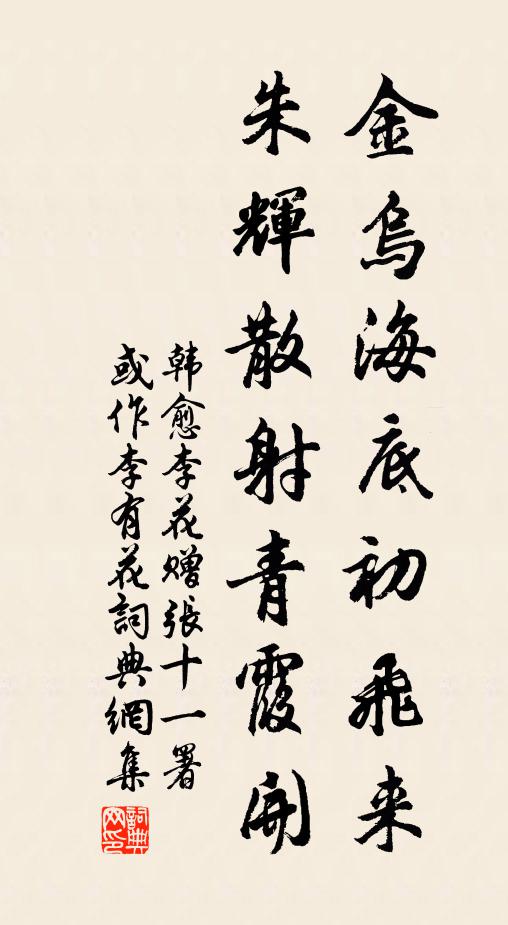 金烏海底初飛来
朱輝散射青霞開
韩愈李花赠張十一署
或作李有花詞典網集
詞典
网印